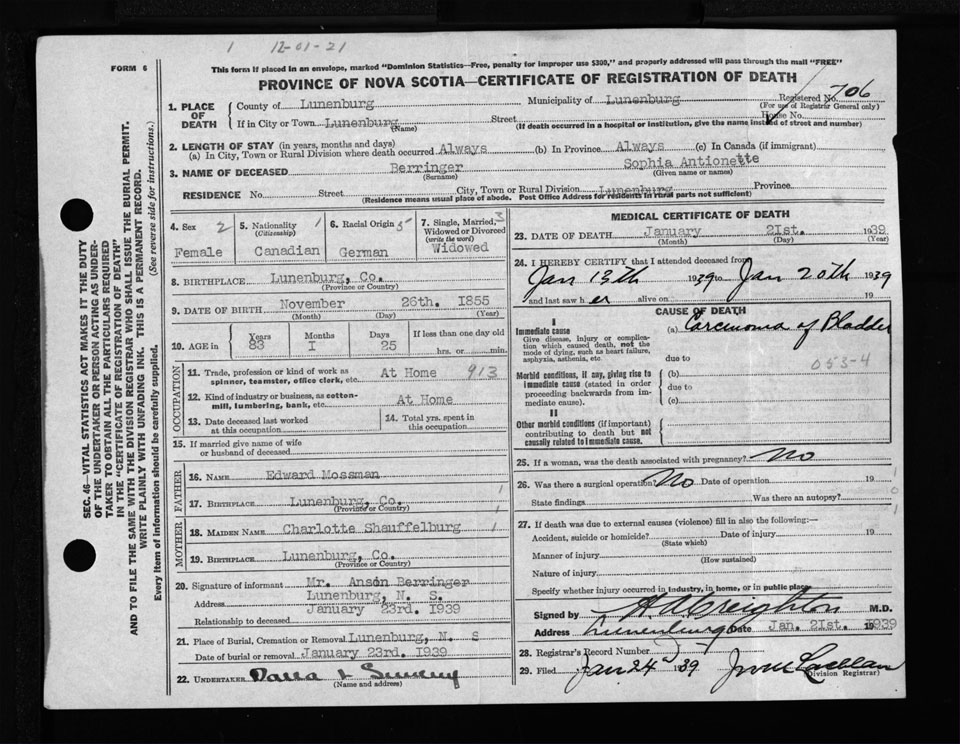 1 12-01-21
FORM 6
This form if placed in an envelope, marked "Dominion Statistics—Free, penalty for improper use $300," and properly addressed will pass through the mail "FREE"
PROVINCE OF NOVA SCOTIA—CERTIFICATE OF REGISTRATION OF DEATH
Registered No. 706
(For use of Registrar General only)
1. PLACE OF DEATH
County of Lunenburg Municipality of Lunenburg
If in City or Town Lunenburg Street House No.
(Name) (If death occurred in a hospital or institution, give the name instead of street and number)
2. LENGTH OF STAY (in years, months and days)
(a) In City, Town or Rural Division where death occurred Always (b) In Province Always (c) In Canada (if immigrant)
3. NAME OF DECEASED Berringer Sophia Antionette
(Surname) (Given name or names)
RESIDENCE No. Street City, Town or Rural Division Lunenburg Province
(Residence means usual place of abode. Post Office Address for residents in rural parts not sufficient)
4. Sex 2 5. Nationality (Citizenship) 1 6. Racial Origin 5 7. Single, Married, Widowed or Divorced (write the word) 3
Female Canadian German Widowed
8. BIRTHPLACE Lunenburg, Co.
(Province or Country)
9. DATE OF BIRTH November 26th. 1855
(Month) (Day) (Year)
10. AGE in Years Months Days If less than one day old
83 I 25 hrs. or min.
OCCUPATION
11. Trade, profession or kind of work as spinner, teamster, office clerk, etc. At Home 913
12. Kind of industry or business, as cotton-mill, lumbering, bank, etc. At Home
13. Date deceased last worked at this occupation
14. Total yrs. spent in this occupation
15. If married give name of wife or husband of deceased
FATHER
16. NAME Edward Mossman
17. BIRTHPLACE Lunenburg, Co.
(Province or Country)
MOTHER
18. MAIDEN NAME Charlotte Shauffelburg
19. BIRTHPLACE Lunenburg, Co.
(Province or Country)
20. Signature of informant Mr. Anson Berringer
Address Lunenburg, N. S.
January 23rd. 1939
Relationship to deceased
21. Place of Burial, Cremation or Removal Lunenburg, N. S
Date of burial or removal January 23rd. 1939
22. UNDERTAKER
(Name and address)
MEDICAL CERTIFICATE OF DEATH
23. DATE OF DEATH January 21st. 1939
(Month) (Day) (Year)
24. I HEREBY CERTIFY that I attended deceased from
Jan 13th 1939 to Jan 20th 1939
and last saw her alive on 19
CAUSE OF DEATH
I
Immediate cause (a) Carcinoma of Bladder
Give disease, injury or complication which caused death, not the mode of dying, such as heart failure, asphyxia, asthenia, etc.
due to 053-4
Morbid conditions, if any, giving rise to immediate cause (stated in order proceeding backwards from immediate cause).
(b)
due to
(c)
II
Other morbid conditions (if important) contributing to death but not causally related to immediate cause.
25. If a woman, was the death associated with pregnancy? No
26. Was there a surgical operation? No Date of operation 19
State findings Was there an autopsy?
27. If death was due to external causes (violence) fill in also the following:—
Accident, suicide or homicide? Date of injury 19
(State which)
Manner of injury
(How sustained)
Nature of injury
Specify whether injury occurred in industry, in home, or in public place
Signed by H A Creighton M.D.
Address Lunenburg Date Jan. 21st. 1939
28. Registrar's Record Number
29. Filed Jan 24 1939
(Division Registrar)
SEC. 46—VITAL STATISTICS ACT MAKES IT THE DUTY
OF THE UNDERTAKER OR PERSON ACTING AS UNDER-
TAKER TO OBTAIN ALL THE PARTICULARS REQUIRED
IN THE "CERTIFICATE OF REGISTRATION OF DEATH"
AND TO FILE THE SAME WITH THE DIVISION REGISTRAR WHO SHALL ISSUE THE BURIAL PERMIT.
WRITE PLAINLY WITH UNFADING INK. THIS IS A PERMANENT RECORD.
Every item of information should be carefully supplied. (See reverse side for instructions.)